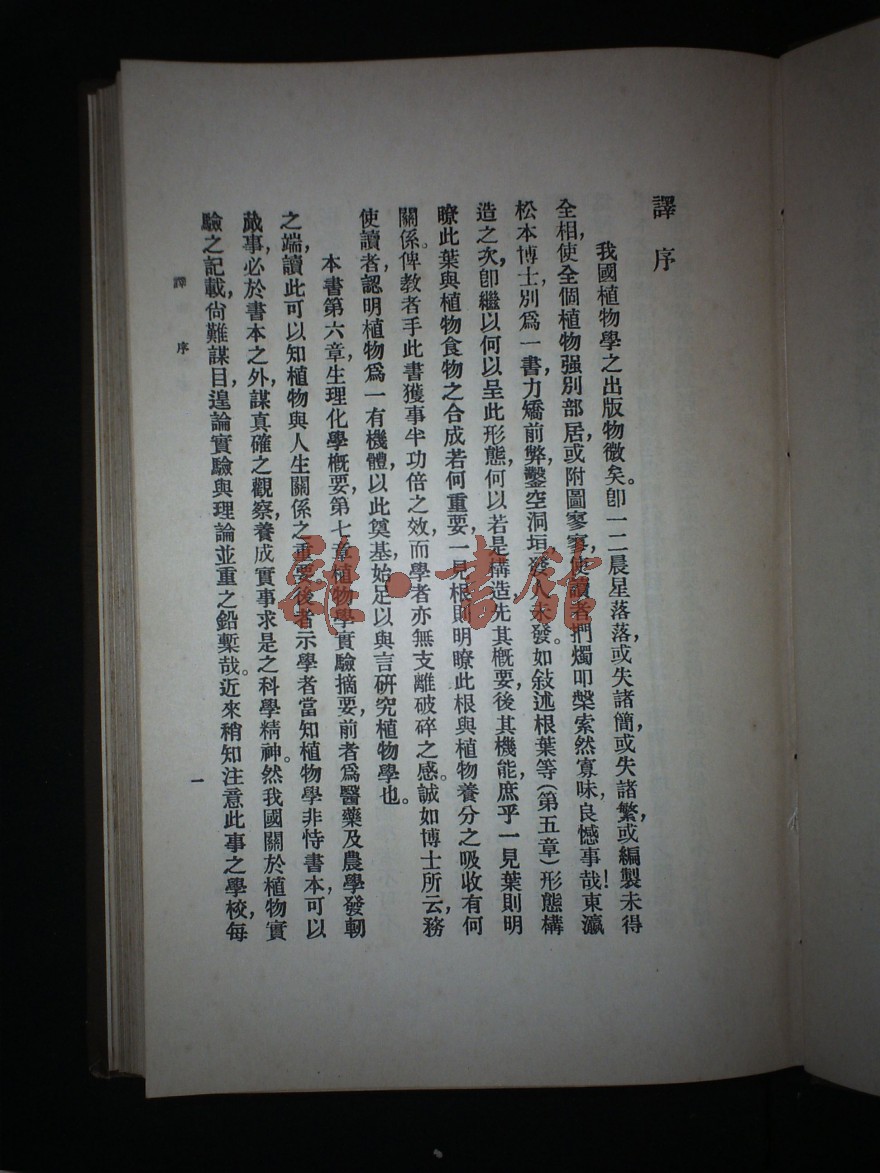 譯序
我國植物學之出版物微矣。卽一二晨星落落,或失諸簡,或失諸繁,或編製未得
全相,使全個植物强別部居,或附圖寥寥,使讀者捫燭叩槃,索然寡味,良憾事哉!東瀛
松本博士,別爲一書,力矯前弊,鑿空洞垣,發人未發。如敍述根葉等(第五章)形態構
造之次,卽繼以何以呈此形態,何以若是構造,先其槪要,後其機能,庶乎一見葉則明
瞭此葉與植物食物之合成若何重要,一見根則明瞭此根與植物養分之吸收有何
關係。俾教者手此書獲事半功倍之效,而學者亦無支離破碎之感。誠如博士所云,務
使讀者,認明植物爲一有機體,以此奠基,始足以與言研究植物學也。
本書第六章生理化學槪要,第七章植物學實驗摘要,前者爲醫藥及農學發軔
之端,讀此可以知植物與人生關係之重要,後者示學者當知植物學非恃書本,可以
蕆事,必於書本之外,謀真確之觀察,養成實事求是之科學精神。然我國關於植物實
驗之記載,尙難謀目,遑論實驗與理論並重之鉛槧哉。近來稍知注意此事之學校,每
譯序
一